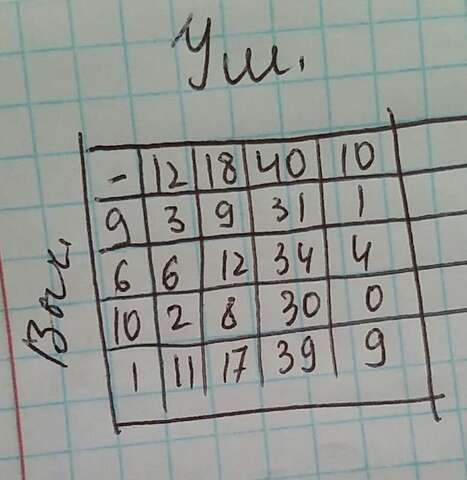 Ум.
Выч.
- 12 18 40 10
9 3 9 31 1
6 6 12 34 4
10 2 8 30 0
1 11 17 39 9